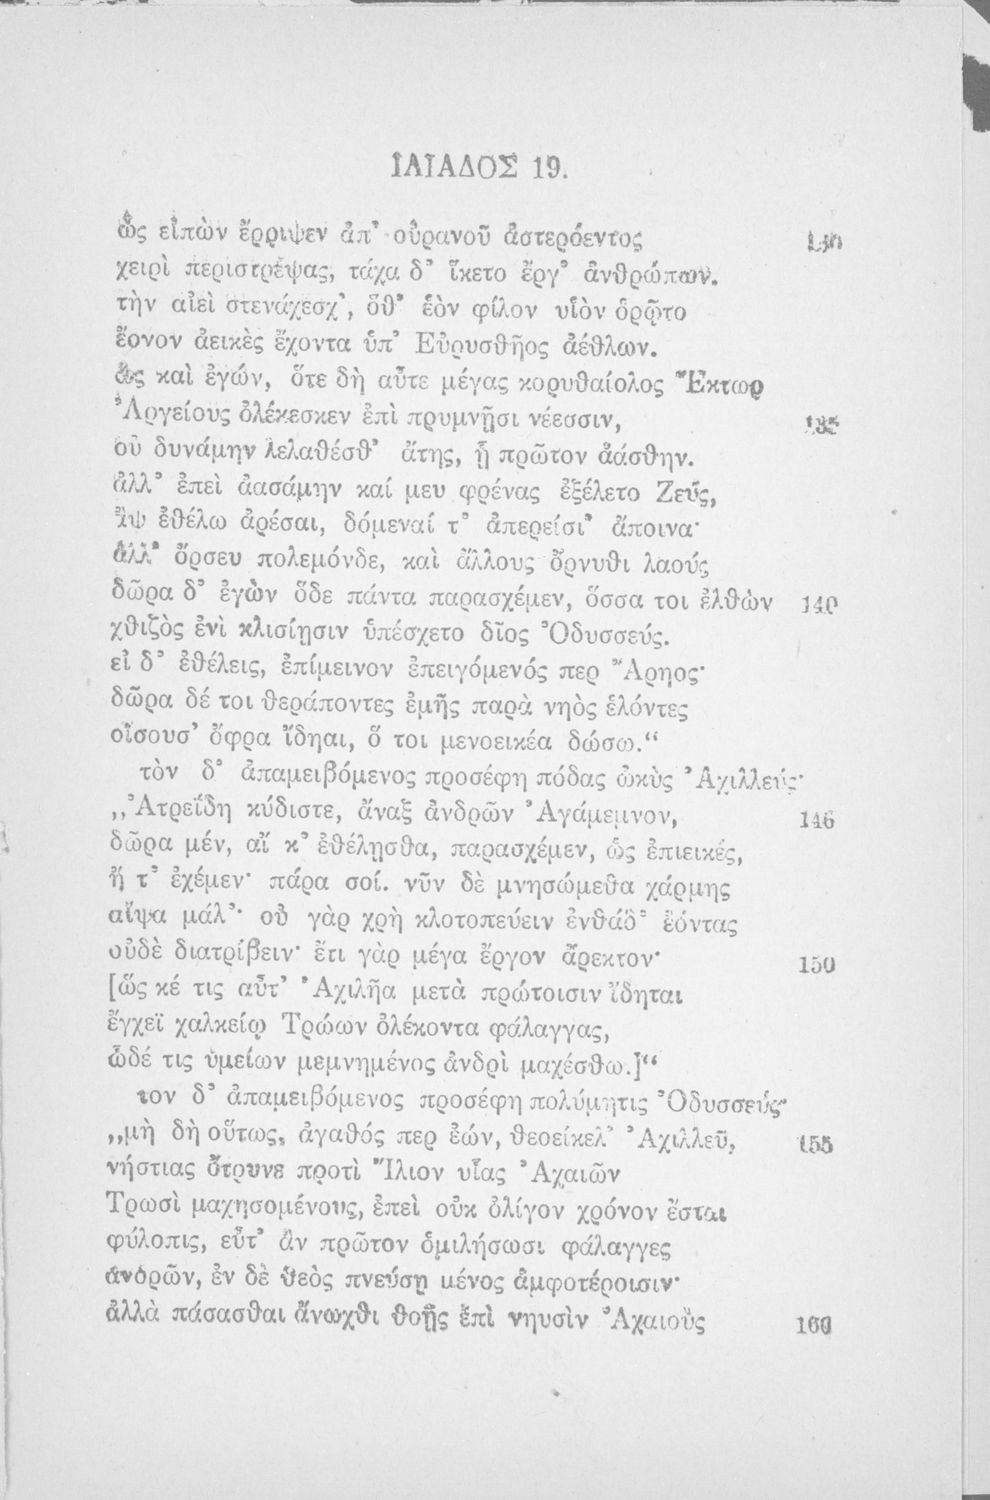 ΙΛΙΑΔΟΣ 19.
ὣς εἰπὼν ἔρριψεν ἀπ’ οὐρανοῦ ἀστερόεντος 130
χειρὶ περιστρέψας, τάχα δ’ ἵκετο ἔργ’ ἀνθρώπων.
τὴν αἰεὶ στενάχεσχ’, ὅθ’ ἑὸν φίλον υἱὸν ὁρῷτο
ἔονον ἀεικὲς ἔχοντα ὑπ’ Εὐρυσθῆος ἀέθλων.
ὣς καὶ ἐγών, ὅτε δὴ αὖτε μέγας κορυθαίολος Ἕκτωρ
Ἀργείους ὀλέκεσκεν ἐπὶ πρυμνῇσι νέεσσιν, 135
οὐ δυνάμην λελαθέσθ’ ἄτης, ᾗ πρῶτον ἀάσθην.
ἀλλ’ ἐπεὶ ἀασάμην καί μευ φρένας ἐξέλετο Ζεύς,
ἂψ ἐθέλω ἀρέσαι, δόμεναί τ’ ἀπερείσι’ ἄποινα·
ἀλλ’ ὄρσευ πολεμόνδε, καὶ ἄλλους ὄρνυθι λαούς
δῶρα δ’ ἐγὼν ὅδε πάντα παρασχέμεν, ὅσσα τοι ἐλθὼν 140
χθιζὸς ἐνὶ κλισίῃσιν ὑπέσχετο δῖος Ὀδυσσεύς.
εἰ δ’ ἐθέλεις, ἐπίμεινον ἐπειγόμενός περ Ἄρηος·
δῶρα δέ τοι θεράποντες ἐμῆς παρὰ νηὸς ἑλόντες
οἴσουσ’ ὄφρα ἴδηαι, ὅ τοι μενοεικέα δώσω.“
τὸν δ’ ἀπαμειβόμενος προσέφη πόδας ὠκὺς Ἀχιλλεύς·
„Ἀτρεΐδη κύδιστε, ἄναξ ἀνδρῶν Ἀγάμεμνον, 146
δῶρα μέν, αἴ κ’ ἐθέλῃσθα, παρασχέμεν, ὡς ἐπιεικές,
ἤ τ’ ἐχέμεν· πάρα σοί. νῦν δὲ μνησώμεθα χάρμης
αἶψα μάλ’· οὐ γὰρ χρὴ κλοτοπεύειν ἐνθάδ’ ἐόντας
οὐδὲ διατρίβειν· ἔτι γὰρ μέγα ἔργον ἄρεκτον· 150
[ὥς κέ τις αὖτ’ Ἀχιλῆα μετὰ πρώτοισιν ἴδηται
ἔγχεϊ χαλκείῳ Τρώων ὀλέκοντα φάλαγγας,
ὧδέ τις ὑμείων μεμνημένος ἀνδρὶ μαχέσθω.]“
τον δ’ ἀπαμειβόμενος προσέφη πολύμητις Ὀδυσσεύς·
„μὴ δὴ οὕτως, ἀγαθός περ ἐών, θεοείκελ’ Ἀχιλλεῦ, 155
νήστιας ὄτρυνε προτὶ Ἴλιον υἷας Ἀχαιῶν
Τρωσὶ μαχησομένους, ἐπεὶ οὐκ ὀλίγον χρόνον ἔσται
φύλοπις, εὖτ’ ἂν πρῶτον ὁμιλήσωσι φάλαγγες
ἀνδρῶν, ἐν δὲ θεὸς πνεύσῃ μένος ἀμφοτέροισιν·
ἀλλὰ πάσασθαι ἄνωχθι θοῇς ἐπὶ νηυσὶν Ἀχαιοὺς 160